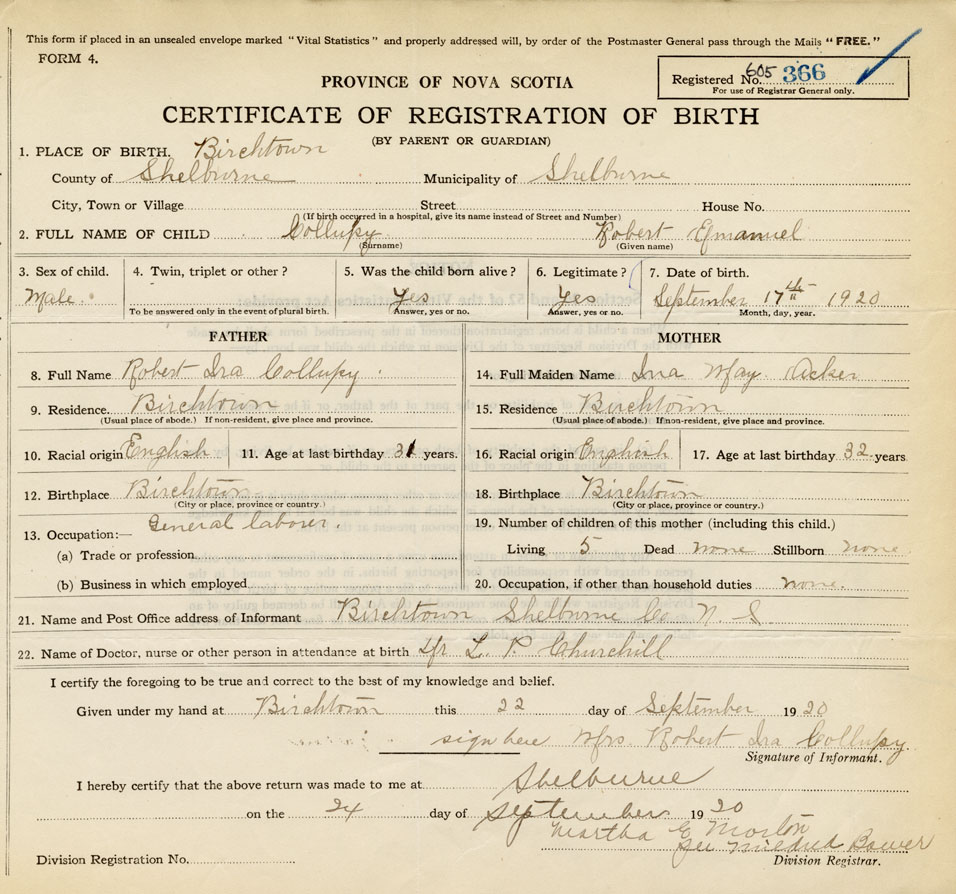 This form if placed in an unsealed envelope marked "Vital Statistics" and properly addressed will, by order of the Postmaster General pass through the Mails "FREE."
FORM 4.
PROVINCE OF NOVA SCOTIA
Registered No. 605 366
For use of Registrar General only.
CERTIFICATE OF REGISTRATION OF BIRTH
(BY PARENT OR GUARDIAN)
1. PLACE OF BIRTH. Birchtown
County of Shelburne Municipality of Shelburne
City, Town or Village Street House No.
(If birth occurred in a hospital, give its name instead of Street and Number)
2. FULL NAME OF CHILD Collupy Robert Emanuel
(Surname) (Given name)
3. Sex of child. 4. Twin, triplet or other? 5. Was the child born alive? 6. Legitimate? 7. Date of birth.
Male. Yes Yes September 17th 1920
To be answered only in the event of plural birth. Answer, yes or no. Answer, yes or no. Month, day, year.
FATHER MOTHER
8. Full Name Robert Ira Collupy. 14. Full Maiden Name Ina May Acker
9. Residence. Birchtown 15. Residence Birchtown
(Usual place of abode.) If non-resident, give place and province. (Usual place of abode.) If non-resident, give place and province.
10. Racial origin English 11. Age at last birthday 31 years. 16. Racial origin English 17. Age at last birthday 32 years
12. Birthplace Birchtown 18. Birthplace Birchtown
(City or place, province or country.) (City or place, province or country.)
General laborer. 19. Number of children of this mother (including this child.)
13. Occupation:—
(a) Trade or profession Living 5 Dead none Stillborn none
(b) Business in which employed 20. Occupation, if other than household duties none.
21. Name and Post Office address of Informant Birchtown Shelburne Co N. S.
22. Name of Doctor, nurse or other person in attendance at birth Dr L. P. Churchill
I certify the foregoing to be true and correct to the best of my knowledge and belief.
Given under my hand at Birchtown this 22 day of September 1920
sign here Mrs. Robert Ira Collupy.
Signature of Informant.
I hereby certify that the above return was made to me at Shelburne
on the 24 day of September 1920
Martha E Morton
Per Mildred Bower
Division Registration No. Division Registrar.